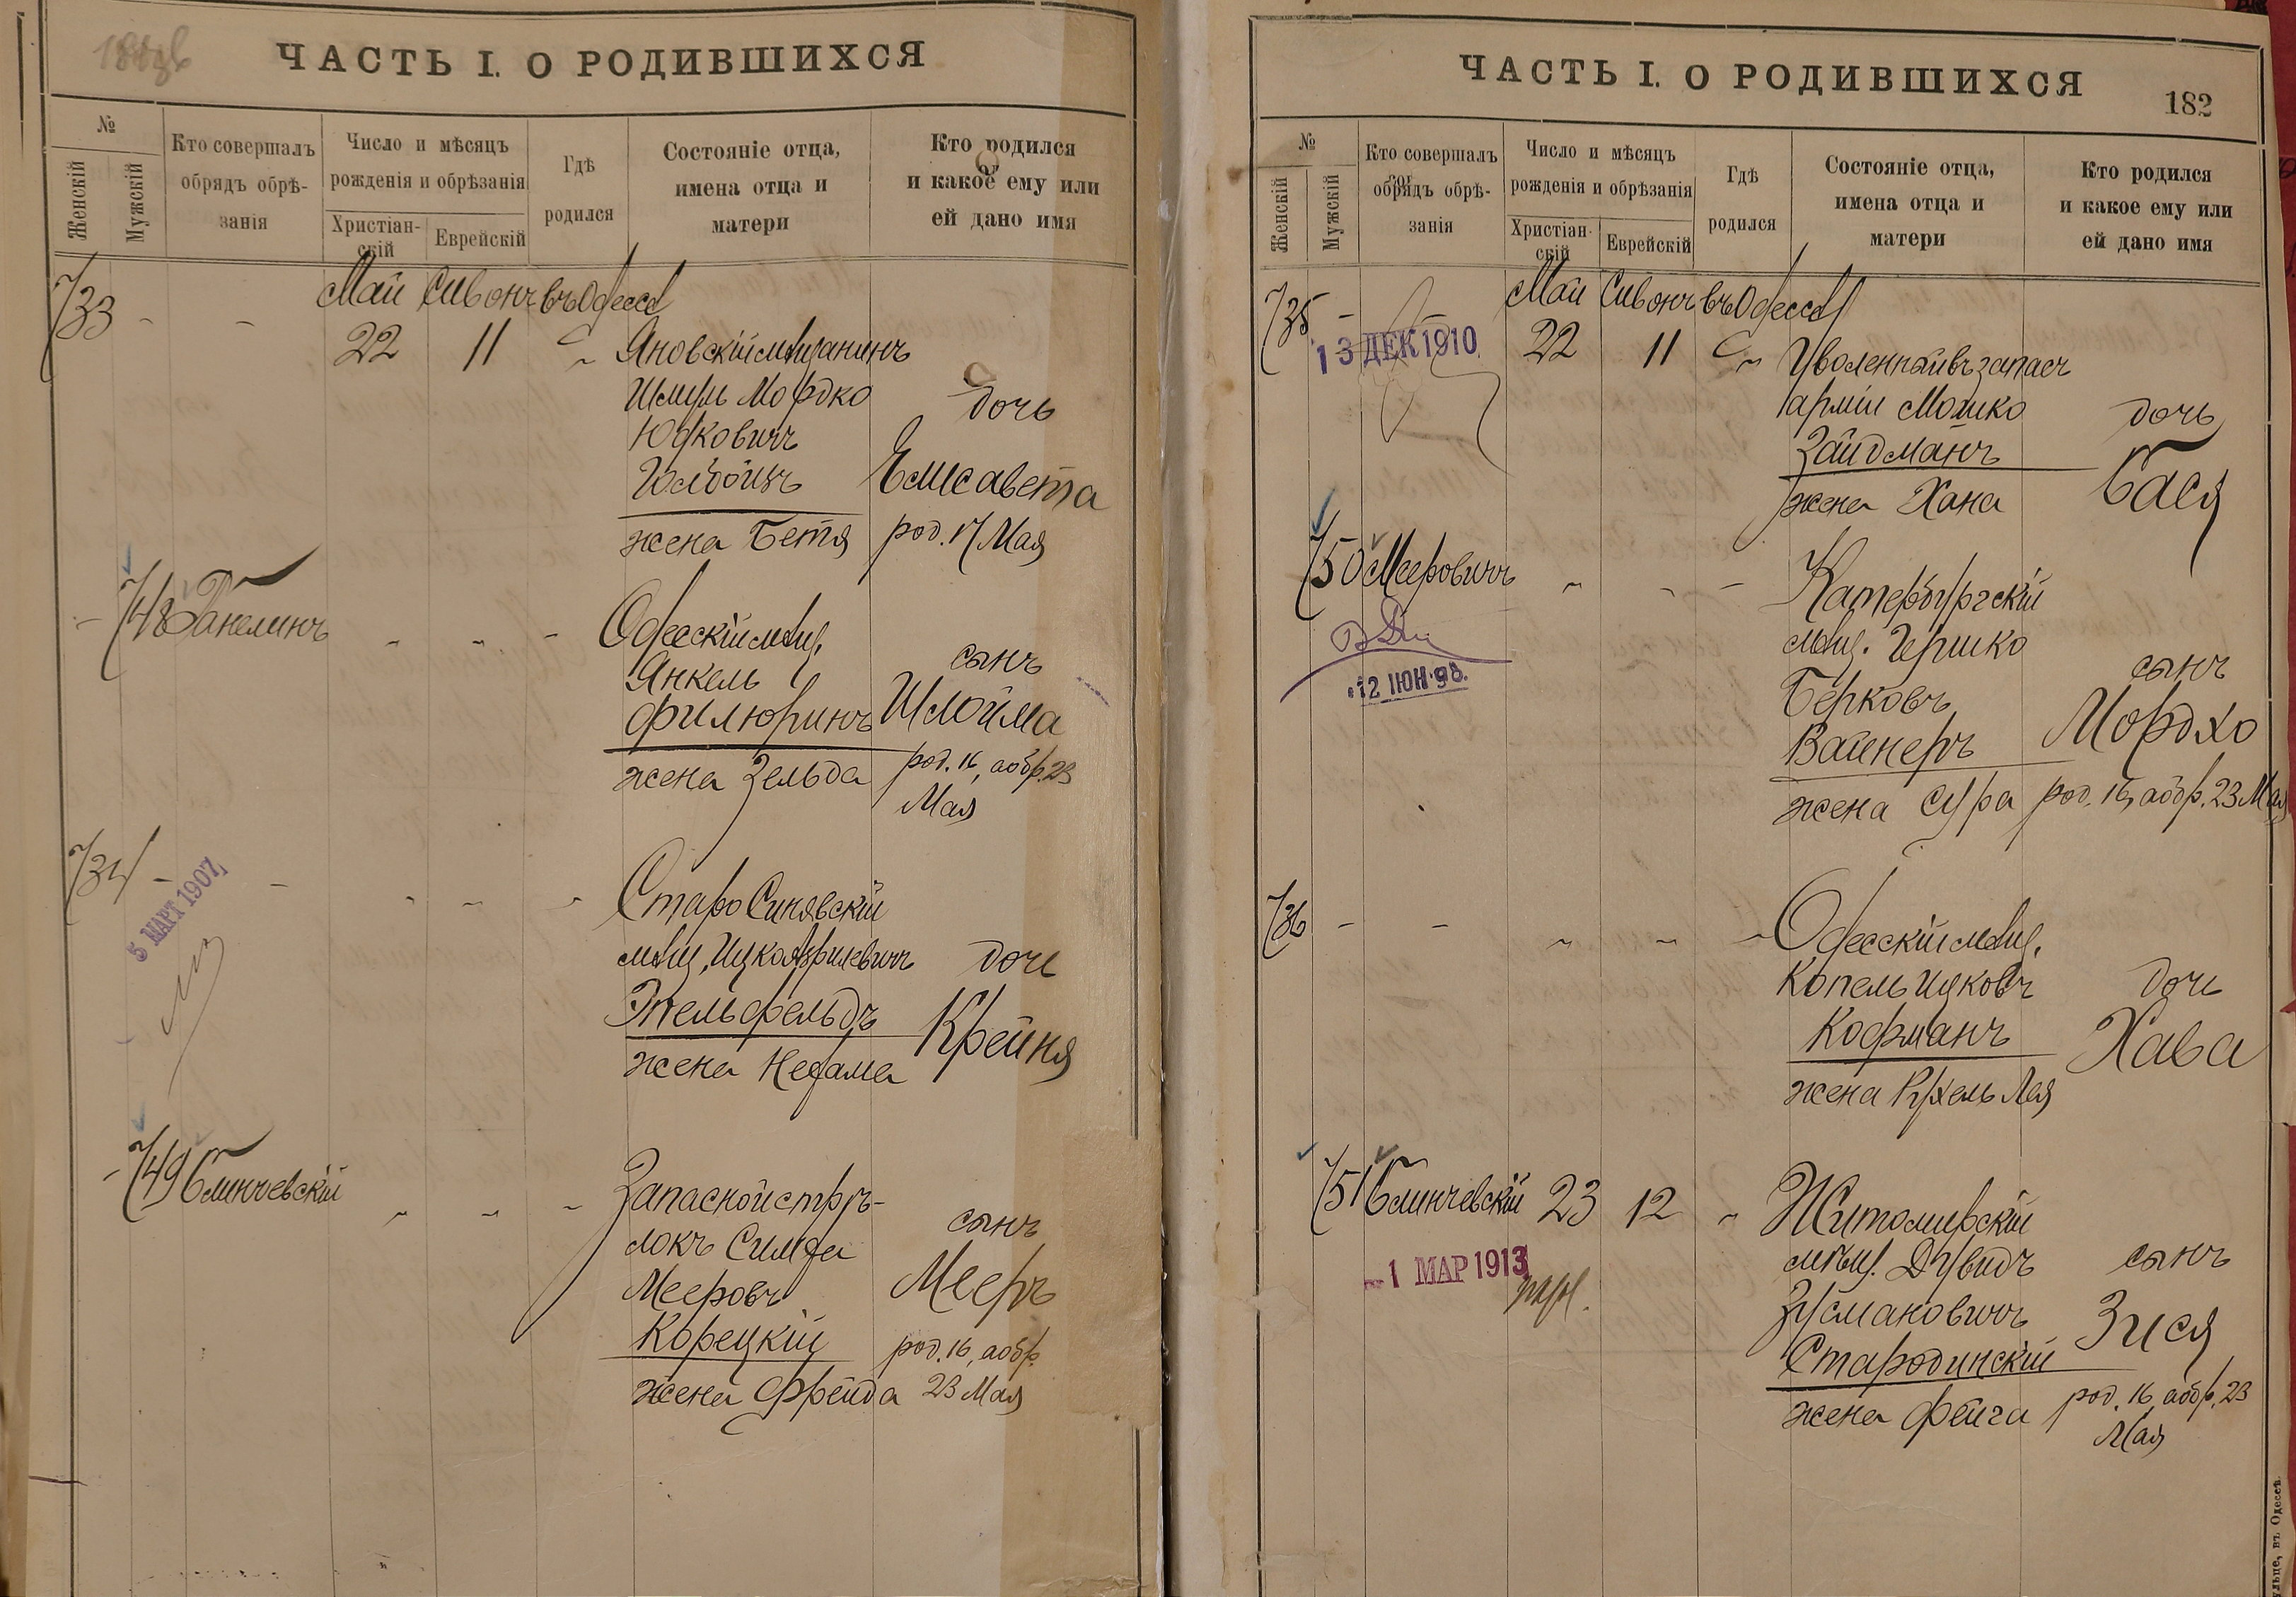 ЧАСТЬ I. О РОДИВШИХСЯ
№
Женскій
Мужскій
Кто совершалъ
обрядъ обрѣ-
занія
Число и мѣсяцъ
рожденія и обрѣзанія
Христіан-
скій
Еврейскій
Гдѣ
родился
Состояніе отца,
имена отца и
матери
Кто родился
и какое ему или
ей дано имя
Май Сивонъ въ Одессѣ
733 - - 22 11 Яновскій мѣщанинъ
Шмуль Мордко
Юдковичъ
Гольбоинъ
жена Бетя
дочь
Елисавета
род. 17 Мая
- 748
Одесскій мѣщ.
Янкель
Филюринъ
жена Зельда
сынъ
Шлойма
род. 16, а обр. 23
Мая
734 - -
5 МАРТ 1907
СтароСинявскій
мѣщ. Ицко Азрилевичъ
Эпельфельдъ
жена Нехама
дочь
Крейня
- 749 Блинчевскій
Запасной стрѣ-
локъ Симха
Мееровъ
Корецкій
жена Фрейда
сынъ
Мееръ
род. 16, а обр.
23 Мая
ЧАСТЬ I. О РОДИВШИХСЯ
182
№
Женскій
Мужскій
Кто совершалъ
обрядъ обрѣ-
занія
Число и мѣсяцъ
рожденія и обрѣзанія
Христіан-
скій
Еврейскій
Гдѣ
родился
Состояніе отца,
имена отца и
матери
Кто родился
и какое ему или
ей дано имя
Май Сивонъ въ Одессѣ
735 - - 22 11 Уволенный въ запасъ
13 ДЕК 1910
арміи Мошко
Зайдманъ
жена Хана
дочь
Бася
750 Мееровичъ
12 ІЮН 98.
Катербургскій
мѣщ. Гершко
Берковъ
Вайнеръ
жена Сура
сынъ
Мордхо
род. 16, а обр. 23 Мая
736 - -
Одесскій мѣщ.
Копель Ицковъ
Кофманъ
жена Рухель Лея
дочь
Хава
751 Блинчевскій 23 12 Житомирскій
1 МАР 1913
мѣщ. Дувидъ
Зусмановичъ
Стародинскій
жена Фейга
сынъ
Зися
род. 16, а обр. 23
Мая
въ Одессѣ.